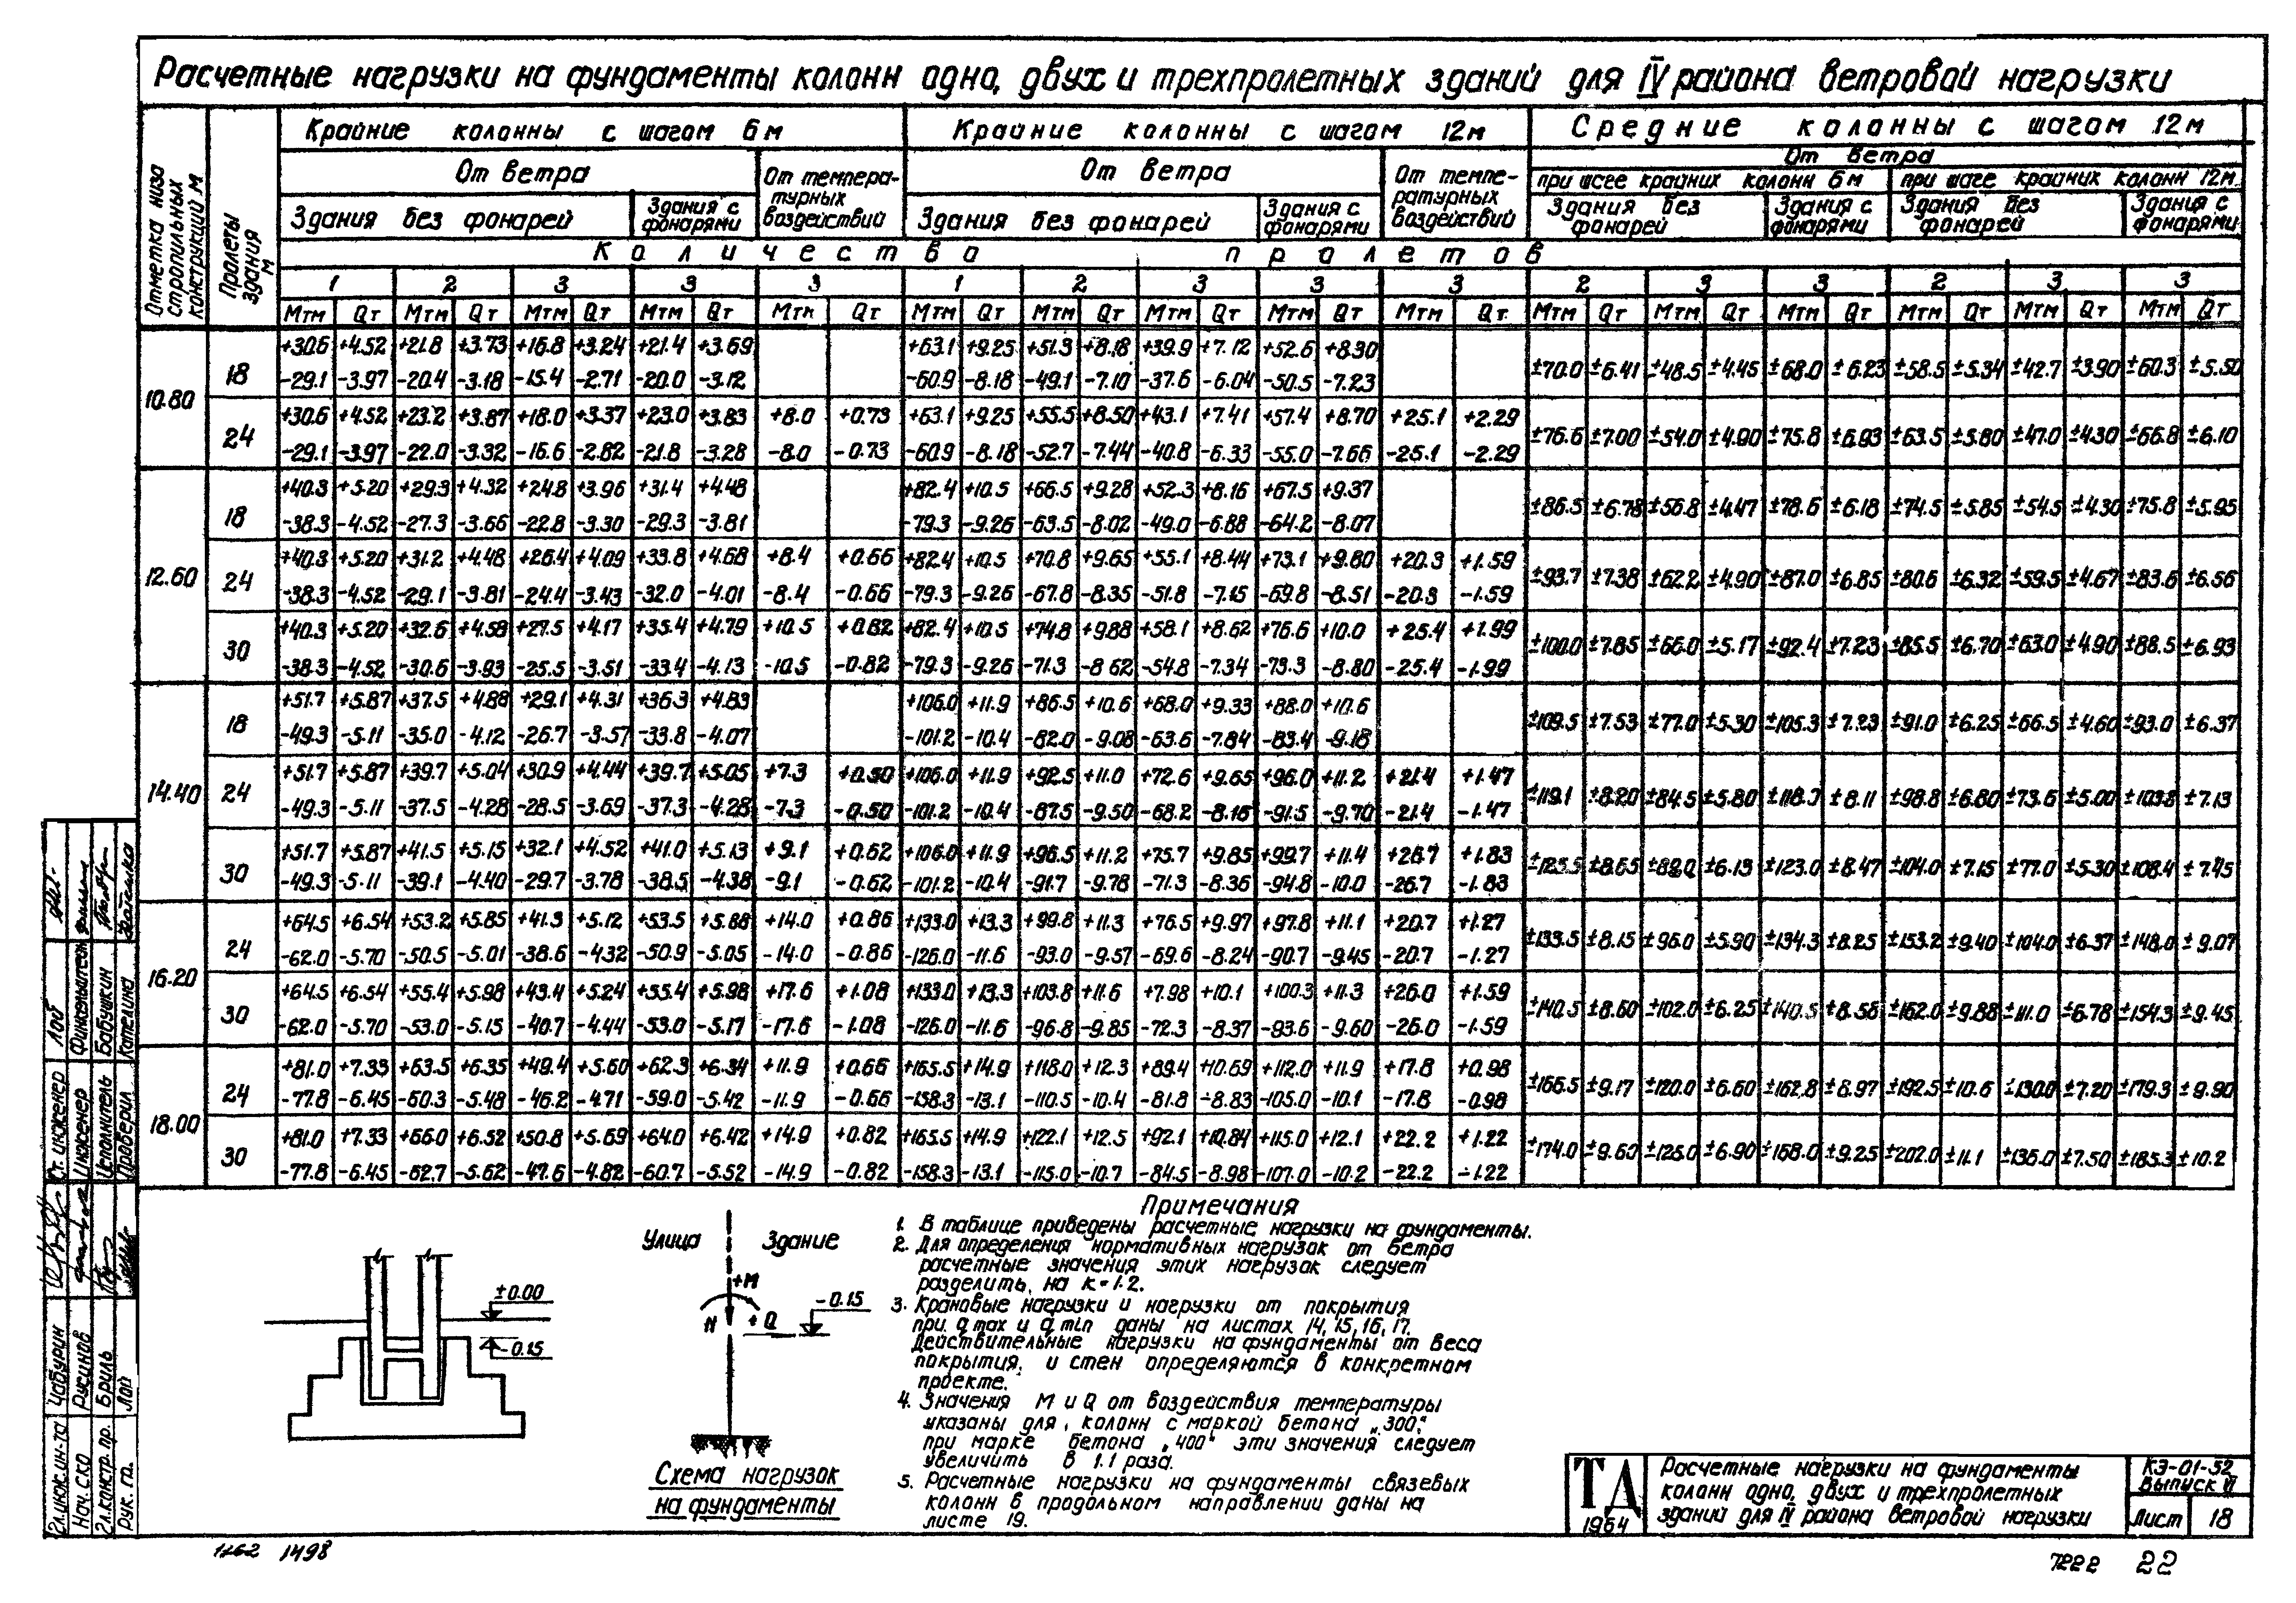 Расчетные нагрузки на фундаменты колонн одно, двух и трехпролетных зданий для IV района ветровой нагрузки
Отметка низа стропильных конструкций м
Пролеты здания м
Крайние колонны с шагом 6м
Крайние колонны с шагом 12м
Средние колонны с шагом 12м
От ветра
От температурных воздействий
От ветра
От температурных воздействий
От ветра
при шсее крайних колонн 6м
при шаге крайних колонн 12м
Здания без фонарей
Здания с фонарями
Здания без фонарей
Здания с фонарями
Здания без фонарей
Здания с фонарями
Здания без фонарей
Здания с фонарями
Количество пролетов
1 2 3 3 3 1 2 3 3 3 2 3 3 2 3 3
Мтм Qт Мтм Qт Мтм Qт Мтм Qт Мтм Qт Мтм Qт Мтм Qт Мтм Qт Мтм Qт Мтм Qт Мтм Qт Мтм Qт Мтм Qт Мтм Qт Мтм Qт Мтм Qт
10.80
18
+30.6 +4.52 +21.8 +3.73 +16.8 +3.24 +21.4 +3.69 +63.1 +9.25 +51.3 +8.18 +39.9 +7.12 +52.6 +8.30
-29.1 -3.97 -20.4 -3.18 -15.4 -2.71 -20.0 -3.12 -60.9 -8.18 -49.1 -7.10 -37.6 -6.04 -50.5 -7.23
±70.0 ±6.41 ±48.5 ±4.45 ±68.0 ±6.23 ±58.5 ±5.34 ±42.7 ±3.90 ±60.3 ±5.50
24
+30.6 +4.52 +23.2 +3.87 +18.0 +3.37 +23.0 +3.83 +8.0 +0.73 +63.1 +9.25 +55.5 +8.50 +43.1 +7.41 +57.4 +8.70 +25.1 +2.29
-29.1 -3.97 -22.0 -3.32 -16.6 -2.82 -21.8 -3.28 -8.0 -0.73 -60.9 -8.18 -52.7 -7.44 -40.8 -6.33 -55.0 -7.66 -25.1 -2.29
±76.6 ±7.00 ±54.0 ±4.90 ±75.8 ±6.93 ±63.5 ±5.80 ±47.0 ±4.30 ±66.8 ±6.10
12.60
18
+40.3 +5.20 +29.3 +4.32 +24.8 +3.96 +31.4 +4.48 +82.4 +10.5 +66.5 +9.28 +52.3 +8.16 +67.5 +9.37
-38.3 -4.52 -27.3 -3.66 -22.8 -3.30 -29.3 -3.81 -79.3 -9.26 -63.5 -8.02 -49.0 -6.88 -64.2 -8.07
±86.5 ±6.78 ±56.8 ±4.47 ±78.6 ±6.18 ±74.5 ±5.85 ±54.5 ±4.30 ±75.8 ±5.95
24
+40.3 +5.20 +31.2 +4.48 +26.4 +4.09 +33.8 +4.68 +8.4 +0.66 +82.4 +10.5 +70.8 +9.65 +55.1 +8.44 +73.1 +9.80 +20.3 +1.59
-38.3 -4.52 -29.1 -3.81 -24.4 -3.43 -32.0 -4.01 -8.4 -0.66 -79.3 -9.26 -67.8 -8.35 -51.8 -7.15 -69.8 -8.51 -20.3 -1.59
±93.7 ±7.38 ±62.2 ±4.90 ±87.0 ±6.85 ±80.6 ±6.32 ±59.5 ±4.67 ±83.6 ±6.56
30
+40.3 +5.20 +32.6 +4.58 +27.5 +4.17 +35.4 +4.79 +10.5 +0.82 +82.4 +10.5 +74.8 +9.88 +58.1 +8.62 +76.6 +10.0 +25.4 +1.99
-38.3 -4.52 -30.6 -3.93 -25.5 -3.51 -33.4 -4.13 -10.5 -0.82 -79.3 -9.26 -71.3 -8.62 -54.8 -7.34 -73.3 -8.80 -25.4 -1.99
±100.0 ±7.85 ±66.0 ±5.17 ±92.4 ±7.23 ±85.5 ±6.70 ±63.0 ±4.90 ±88.5 ±6.93
14.40
18
+51.7 +5.87 +37.5 +4.88 +29.1 +4.31 +36.3 +4.83 +106.0 +11.9 +86.5 +10.6 +68.0 +9.33 +88.0 +10.6
-49.3 -5.11 -35.0 -4.12 -26.7 -3.57 -33.8 -4.07 -101.2 -10.4 -82.0 -9.08 -63.6 -7.84 -83.4 -9.18
±109.5 ±7.53 ±77.0 ±5.30 ±105.3 ±7.23 ±91.0 ±6.25 ±66.5 ±4.60 ±93.0 ±6.37
24
+51.7 +5.87 +39.7 +5.04 +30.9 +4.44 +39.7 +5.05 +7.3 +0.50 +106.0 +11.9 +92.5 +11.0 +72.6 +9.65 +96.0 +11.2 +21.4 +1.47
-49.3 -5.11 -37.5 -4.28 -28.5 -3.69 -37.3 -4.28 -7.3 -0.50 -101.2 -10.4 -87.5 -9.50 -68.2 -8.16 -91.5 -9.70 -21.4 -1.47
±119.1 ±8.20 ±84.5 ±5.80 ±118.3 ±8.11 ±98.8 ±6.80 ±73.6 ±5.00 ±103.8 ±7.13
30
+51.7 +5.87 +41.5 +5.15 +32.1 +4.52 +41.0 +5.13 +9.1 +0.62 +106.0 +11.9 +96.5 +11.2 +75.7 +9.85 +99.7 +11.4 +26.7 +1.83
-49.3 -5.11 -39.1 -4.40 -29.7 -3.78 -38.5 -4.38 -9.1 -0.62 -101.2 -10.4 -91.7 -9.78 -71.3 -8.36 -94.8 -10.0 -26.7 -1.83
±125.5 ±8.65 ±89.0 ±6.13 ±123.0 ±8.47 ±104.0 ±7.15 ±77.0 ±5.30 ±108.4 ±7.45
16.20
24
+64.5 +6.54 +53.2 +5.85 +41.3 +5.12 +53.5 +5.88 +14.0 +0.86 +133.0 +13.3 +99.8 +11.3 +76.5 +9.97 +97.8 +11.1 +20.7 +1.27
-62.0 -5.70 -50.5 -5.01 -38.6 -4.32 -50.9 -5.05 -14.0 -0.86 -126.0 -11.6 -93.0 -9.57 -69.6 -8.24 -90.7 -9.45 -20.7 -1.27
±133.5 ±8.15 ±96.0 ±5.90 ±134.3 ±8.25 ±153.2 ±9.40 ±104.0 ±6.37 ±148.0 ±9.07
30
+64.5 +6.54 +55.4 +5.98 +43.4 +5.24 +55.4 +5.98 +17.6 +1.08 +133.0 +13.3 +103.8 +11.6 +7.98 +10.1 +100.3 +11.3 +26.0 +1.59
-62.0 -5.70 -53.0 -5.15 -40.7 -4.44 -53.0 -5.17 -17.6 -1.08 -126.0 -11.6 -96.8 -9.85 -72.3 -8.37 -93.6 -9.60 -26.0 -1.59
±140.5 ±8.60 ±102.0 ±6.25 ±140.5 ±8.58 ±162.0 ±9.88 ±111.0 ±6.78 ±154.3 ±9.45
18.00
24
+81.0 +7.33 +63.5 +6.35 +49.4 +5.60 +62.3 +6.34 +11.9 +0.66 +165.5 +14.9 +118.0 +12.3 +89.4 +10.69 +112.0 +11.9 +17.8 +0.98
-77.8 -6.45 -60.3 -5.48 -46.2 -4.71 -59.0 -5.42 -11.9 -0.66 -158.3 -13.1 -110.5 -10.4 -81.8 -8.83 -105.0 -10.1 -17.8 -0.98
±166.5 ±9.17 ±120.0 ±6.60 ±162.8 ±8.97 ±192.5 ±10.6 ±130.0 ±7.20 ±179.3 ±9.90
30
+81.0 +7.33 +66.0 +6.52 +50.8 +5.69 +64.0 +6.42 +14.9 +0.82 +165.5 +14.9 +122.1 +12.5 +92.1 +10.84 +115.0 +12.1 +22.2 +1.22
-77.8 -6.45 -62.7 -5.62 -47.6 -4.82 -60.7 -5.52 -14.9 -0.82 -158.3 -13.1 -115.0 -10.7 -84.5 -8.98 -107.0 -10.2 -22.2 -1.22
±174.0 ±9.60 ±126.0 ±6.90 ±168.0 ±9.25 ±202.0 ±11.1 ±136.0 ±7.50 ±185.3 ±10.2
±0.00
-0.15
Улица Здание
+М
N +Q
-0.15
Схема нагрузок
на фундаменты
Примечания
1. В таблице приведены расчетные нагрузки на фундаменты.
2. Для определения нормативных нагрузок от ветра
расчетные значения этих нагрузок следует
разделить на к=1.2.
3. Крановые нагрузки и нагрузки от покрытия
при q max и q min даны на листах 14, 15, 16, 17.
Действительные нагрузки на фундаменты от веса
покрытия и стен определяются в конкретном
проекте.
4. Значения М и Q от воздействия температуры
указаны для колонн с маркой бетона „300";
при марке бетона „400" эти значения следует
увеличить в 1.1 раза.
5. Расчетные нагрузки на фундаменты связевых
колонн в продольном направлении даны на
листе 19.
ТД
1964
Расчетные нагрузки на фундаменты
колонн одно, двух и трехпролетных
зданий для IV района ветровой нагрузки
КЭ-01-52
Выпуск VI
Лист 18
Гл.инж.ин-та Чабурин Ст. инженер Лоб
Нач. СКО Русинов Инженер
Гл.констр. пр. Бриль Исполнитель Бабушкин
Рук. гр. Лоп Проверил Капелина
1162 1498
7222 22